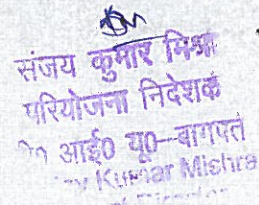 संजय कुमार मिश्रा
परियोजना निदेशक
आई0 यू0—बागपत
Kumar Mishra